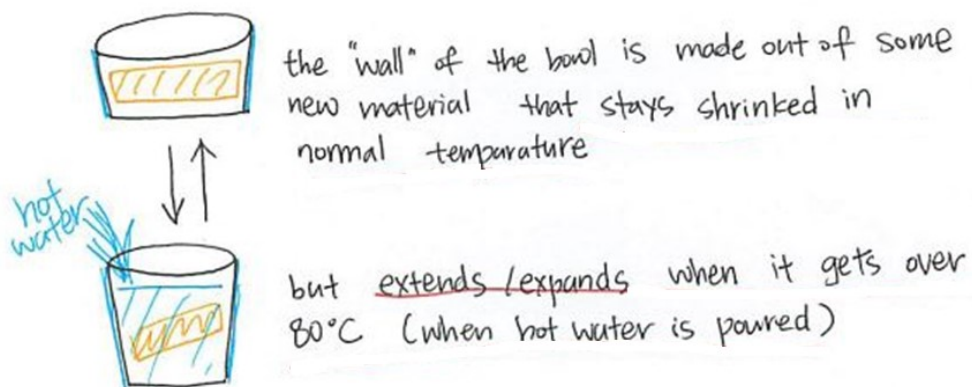 the "wall" of the bowl is made out of some
new material that stays shrinked in
normal temparature
hot
water
but extends/expands when it gets over
80°C (when hot water is poured)